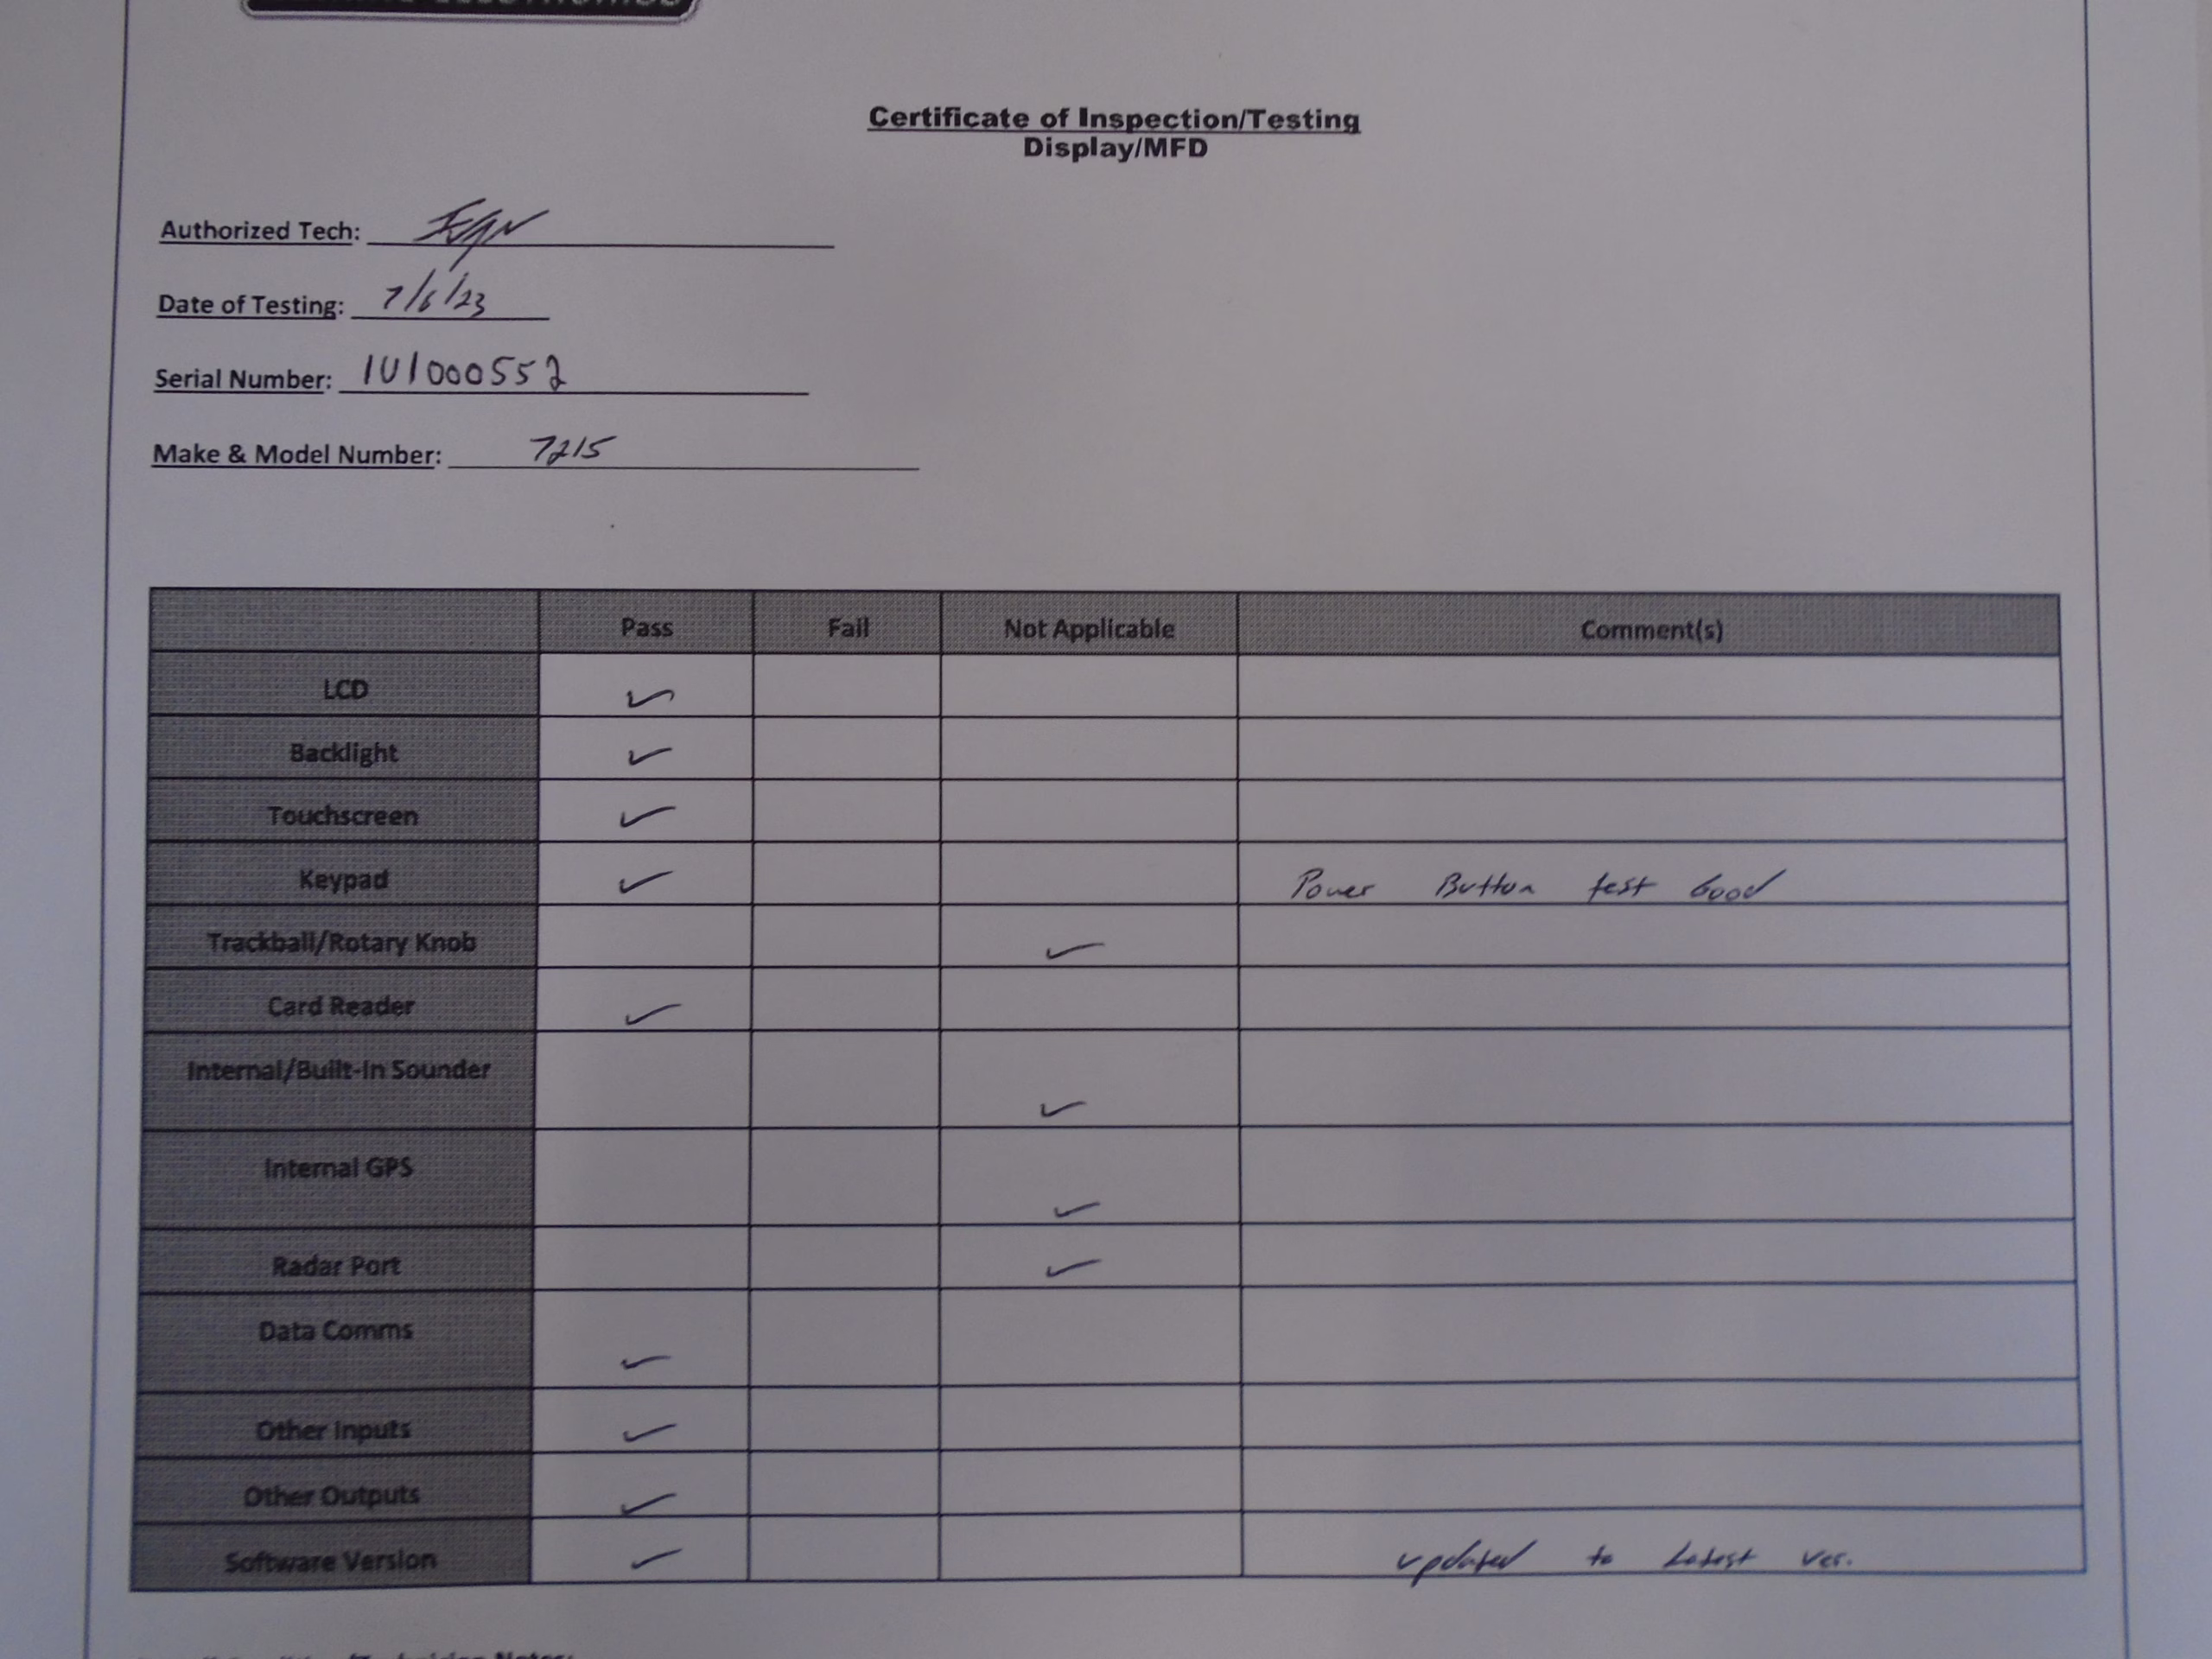 Certificate of Inspection/Testing
Display/MFD
Authorized Tech:
Date of Testing: 7/6/23
Serial Number: 1U1000552
Make & Model Number: 7215
Pass Fail Not Applicable Comment(s)
LCD ✓
Backlight ✓
Touchscreen ✓
Keypad ✓ Power Button test Good
Trackball/Rotary Knob ✓
Card Reader ✓
Internal/Built-In Sounder ✓
Internal GPS ✓
Radar Port ✓
Data Comms ✓
Other Inputs ✓
Other Outputs ✓
Software Version ✓ updated to Latest ver.